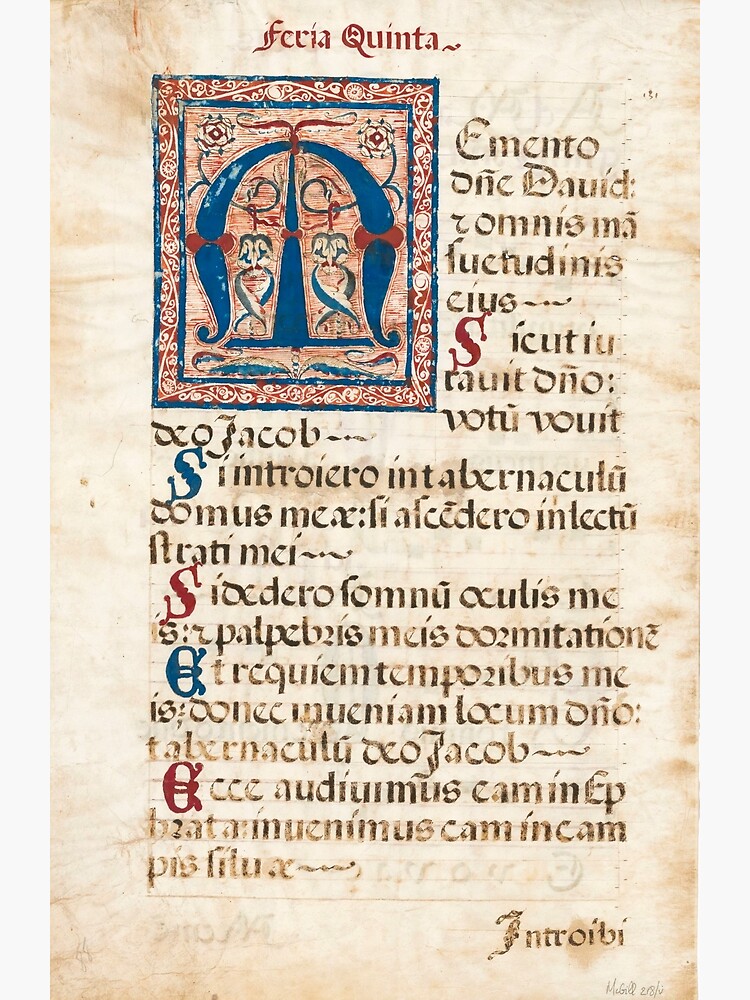 Feria Quinta
131
Memento
dñe Dauid:
⁊ omnis mã
suetudinis
eius
Sicut iu
rauit dño:
votũ vouit
deo Jacob
Si introiero in tabernaculũ
domus meæ: si ascẽdero in lectũ
strati mei
Si dedero somnũ oculis me
is: ⁊ palpebris meis dormitationẽ
Et requiem temporibus me
is: donec inueniam locum dño:
tabernaculũ deo Jacob
Ecce audiuim̃us eam in Ep
hrata: inuenimus eam in cam
pis siluæ
Introibi
McGill 218/v